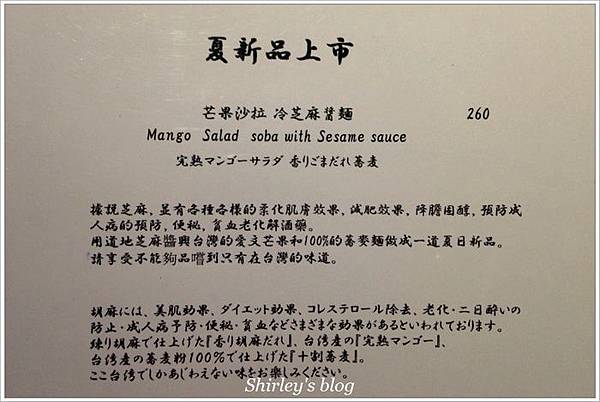 夏新品上市
芒果沙拉 冷芝麻醬麵 260
Mango Salad soba with Sesame sauce
完熟マンゴーサラダ 香りごまだれ蕎麦
據說芝麻, 並有各種各樣的柔化肌膚效果, 減肥效果, 降膽固醇, 預防成
人病的預防, 便秘, 貧血老化解酒藥。
用道地芝麻醬與台灣的愛文芒果和100%的蕎麥麵做成一道夏日新品。
請享受不能夠品嚐到只有在台灣的味道。
胡麻には、美肌効果、ダイエット効果、コレステロール除去、老化・二日酔いの
防止・成人病予防・便秘・貧血などさまざまな効果があるといわれております。
練り胡麻で仕上げた『香り胡麻だれ』、台湾産の『完熟マンゴー』、
台湾産の蕎麦粉100%で仕上げた『十割蕎麦』。
ここ台湾でしかあじわえない味をお楽しみください。
Shirley's blog